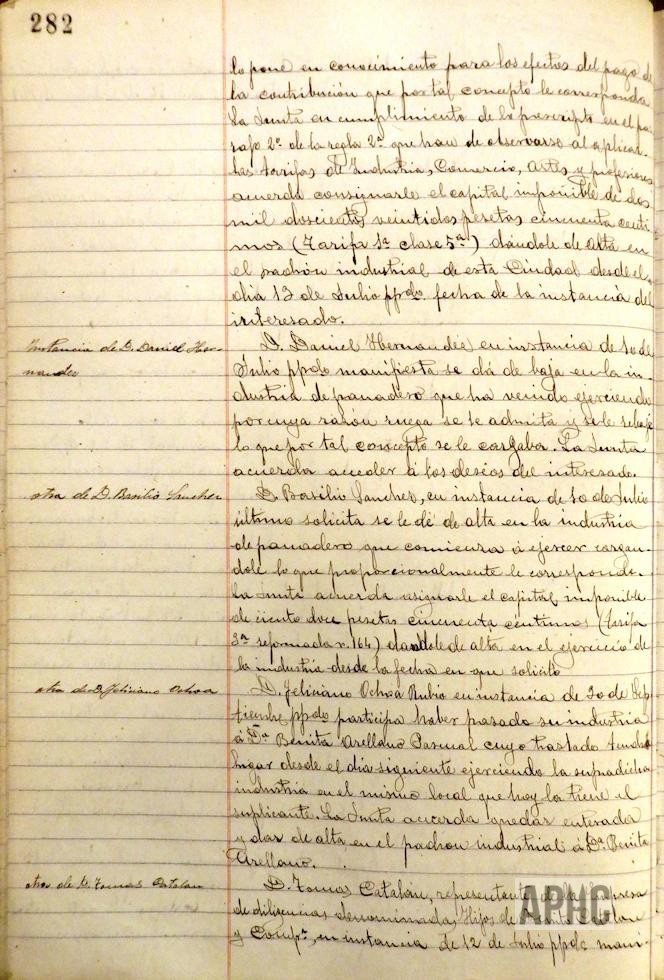 282
lo pone en conocimiento para los efectos del pago de
la contribución que por tal concepto le corresponda
La Junta en cumplimiento de lo prescripto en el pár
rafo 2º de la regla 2ª que han de observarse al aplicar
las tarifas de Industria, Comercio, Artes y profesiones
acuerda consignarle el capital imponible de dos
mil doscientos veintidos pesetas cincuenta centi
mos (Tarifa 1ª clase 5ª) dándole de alta en
el padrón industrial de esta Ciudad desde el
dia 13 de Julio ppdo. fecha de la instancia del
interesado.
Instancia de D. Daniel Her-
nandez
D. Daniel Hernandez en instancia de 10 de
Julio ppdo manifiesta se dá de baja en la in-
dustria de panadero que ha venido ejerciendo
por cuya razón ruega se le admita y se le rebaje
lo que por tal concepto se le cargaba. La Junta
acuerda acceder á los deseos del interesado.
otra de D. Basilio Sanchez
D. Basilio Sanchez, en instancia de 10 de Julio
último solicita se le dé de alta en la industria
de panadero que comienza á ejercer cargan-
dole lo que proporcionalmente le corresponda.
La Junta acuerda asignarle el capital imponible
de ciento doce pesetas cincuenta centimos (tarifa
3ª reformada n. 164) dandole de alta en el ejercicio de
la industria desde la fecha en que solicitó
otra de D. Feliciano Ochoa
D. Feliciano Ochoa Rubio en instancia de 20 de Sep
tiembre ppdo participa haber pasado su industria
á Dª Benita Arellano Pascual cuyo traslado tendrá
lugar desde el dia siguiente ejerciendo la supradicha
industria en el mismo local que hoy la tiene el
suplicante. La Junta acuerda quedar enterada
y dar de alta en el padron industrial á Dª Benita
Arellano.
otra de D. Tomas Catalan
D. Tomas Catalán, representante de la empresa
de diligencias denominada, Hijos de Catalan
y Compª, en instancia de 12 de Julio ppdo. mani-
APHC